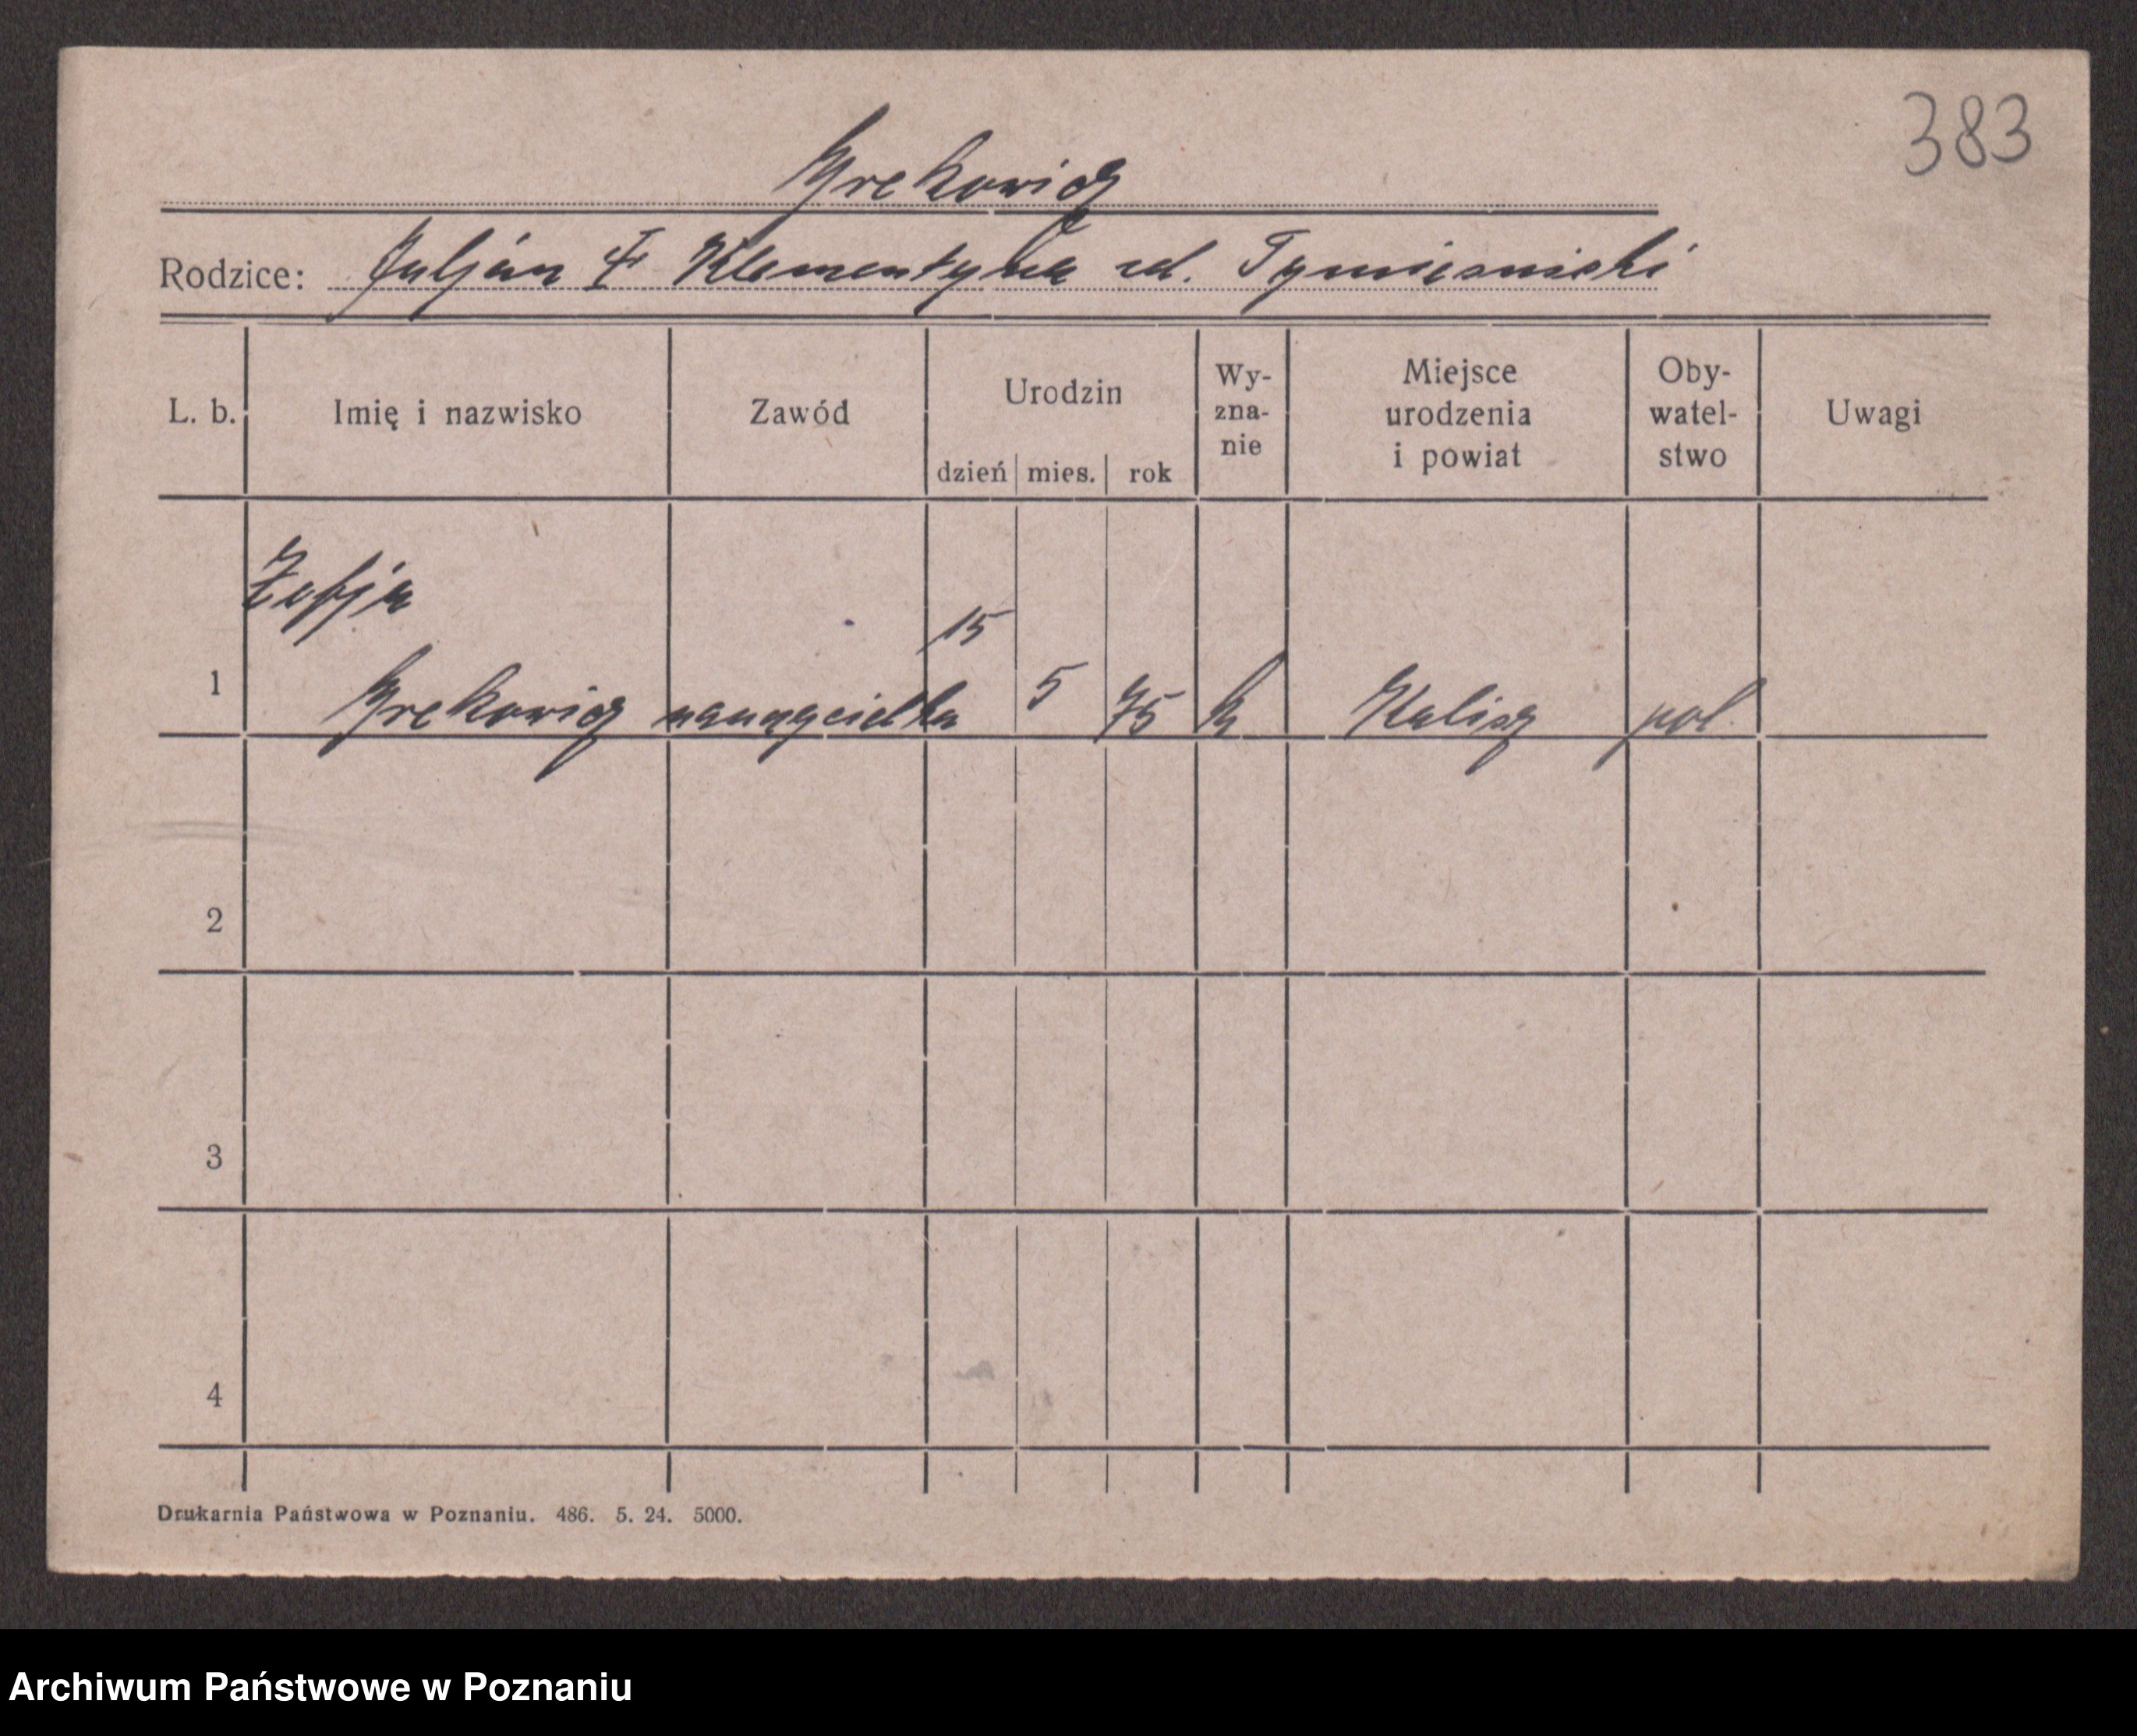 383
Grekowicz
Rodzice: Juljan i Klementyna zd. Tymieniecki
L. b. Imię i nazwisko Zawód Urodzin dzień mies. rok Wy-zna-nie Miejsce urodzenia i powiat Oby-watel-stwo Uwagi
Zofja
15
1 Grekowicz nauczycielka 5 75 k Kalisz pol.
2
3
4
Drukarnia Państwowa w Poznaniu. 486. 5. 24. 5000.
Archiwum Państwowe w Poznaniu